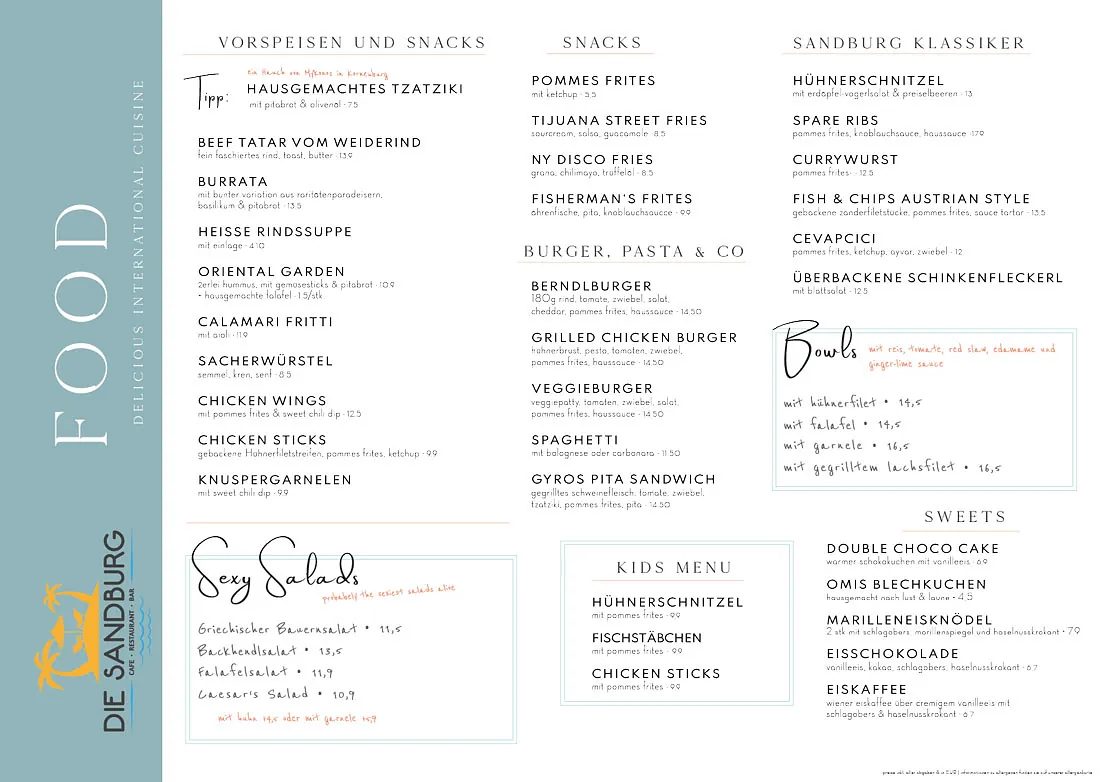 FOOD
DELICIOUS INTERNATIONAL CUISINE
DIE SANDBURG
CAFE • RESTAURANT • BAR
VORSPEISEN UND SNACKS
Tipp:
ein Hauch von Mykonos in Korneuburg
HAUSGEMACHTES TZATZIKI
mit pitabrot & olivenöl · 7.5
BEEF TATAR VOM WEIDERIND
fein faschiertes rind, toast, butter · 13.9
BURRATA
mit bunter variation aus raritätenparadeisern,
basilikum & pitabrot · 13.5
HEISSE RINDSSUPPE
mit einlage · 4.10
ORIENTAL GARDEN
2erlei hummus, mit gemüsesticks & pitabrot · 10.9
+ hausgemachte falafel · 1.5/stk
CALAMARI FRITTI
mit aioli · 11.9
SACHERWÜRSTEL
semmel, kren, senf · 8.5
CHICKEN WINGS
mit pommes frites & sweet chili dip · 12.5
CHICKEN STICKS
gebackene Hühnerfiletstreifen, pommes frites, ketchup · 9.9
KNUSPERGARNELEN
mit sweet chili dip · 9.9
Sexy Salads
probabely the sexiest salads alive
Griechischer Bauernsalat • 11,5
Backhendlsalat • 13,5
Falafelsalat • 11,9
Caesar's Salad • 10,9
mit huhn +4,5 oder mit garnele +5,9
SNACKS
POMMES FRITES
mit ketchup · 5.5
TIJUANA STREET FRIES
sourcream, salsa, guacamole · 8.5
NY DISCO FRIES
grana, chilimayo, trüffelöl · 8.5
FISHERMAN'S FRITES
ährenfische, pita, knoblauchsaucce · 9.9
BURGER, PASTA & CO
BERNDLBURGER
180g rind, tomate, zwiebel, salat,
cheddar, pommes frites, haussauce · 14.50
GRILLED CHICKEN BURGER
hühnerbrust, pesto, tomaten, zwiebel,
pommes frites, haussauce · 14.50
VEGGIEBURGER
veggiepatty, tomaten, zwiebel, salat,
pommes frites, haussauce · 14.50
SPAGHETTI
mit bolognese oder carbonara · 11.50
GYROS PITA SANDWICH
gegrilltes schweinefleisch, tomate, zwiebel,
tzatziki, pommes frites, pita · 14.50
KIDS MENU
HÜHNERSCHNITZEL
mit pommes frites · 9.9
FISCHSTÄBCHEN
mit pommes frites · 9.9
CHICKEN STICKS
mit pommes frites · 9.9
SANDBURG KLASSIKER
HÜHNERSCHNITZEL
mit erdäpfel-vogerlsalat & preiselbeeren · 13
SPARE RIBS
pommes frites, knoblauchsauce, haussauce ·17.9
CURRYWURST
pommes frites· · 12.5
FISH & CHIPS AUSTRIAN STYLE
gebackene zanderfiletstücke, pommes frites, sauce tartar · 13.5
CEVAPCICI
pommes frites, ketchup, ayvar, zwiebel · 12
ÜBERBACKENE SCHINKENFLECKERL
mit blattsalat · 12.5
Bowls
mit reis, tomate, red slaw, edamame und
ginger-lime sauce
mit hühnerfilet • 14,5
mit falafel • 14,5
mit garnele • 16,5
mit gegrilltem lachsfilet • 16,5
SWEETS
DOUBLE CHOCO CAKE
warmer schokokuchen mit vanilleeis · 6.9
OMIS BLECHKUCHEN
hausgemacht nach lust & laune • 4.5
MARILLENEISKNÖDEL
2 stk mit schlagobers, marillenspiegel und haselnusskrokant • 7.9
EISSCHOKOLADE
vanilleeis, kakao, schlagobers, haselnusskrokant · 6.7
EISKAFFEE
wiener eiskaffee über cremigem vanilleeis mit
schlagobers & haselnusskrokant · 6.7